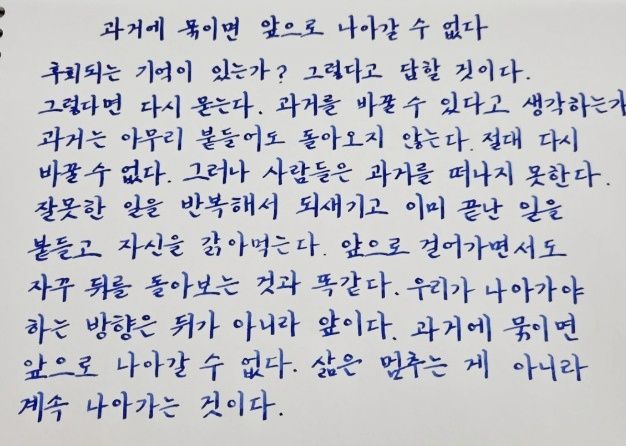 과거에 묶이면 앞으로 나아갈 수 없다
후회되는 기억이 있는가? 그렇다고 답할 것이다.
그렇다면 다시 묻는다. 과거를 바꿀 수 있다고 생각하는가
과거는 아무리 붙들어도 돌아오지 않는다. 절대 다시
바꿀 수 없다. 그러나 사람들은 과거를 떠나지 못한다.
잘못한 일을 반복해서 되새기고 이미 끝난 일을
붙들고 자신을 갉아먹는다. 앞으로 걸어가면서도
자꾸 뒤를 돌아보는 것과 똑같다. 우리가 나아가야
하는 방향은 뒤가 아니라 앞이다. 과거에 묶이면
앞으로 나아갈 수 없다. 삶은 멈추는 게 아니라
계속 나아가는 것이다.